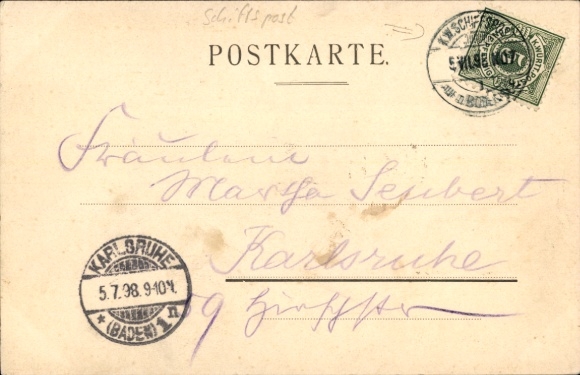 Schiffspost
POSTKARTE.
K.W. SCHIFFSPOST
5 VII 98
AUF D. BODENSEE
K. WÜRTT. POST
5
Fräulein
Martha Seubert
Karlsruhe
59 Hirschstr
KARLSRUHE
5.7.98. 9-10 N.
* (BADEN) 1 II